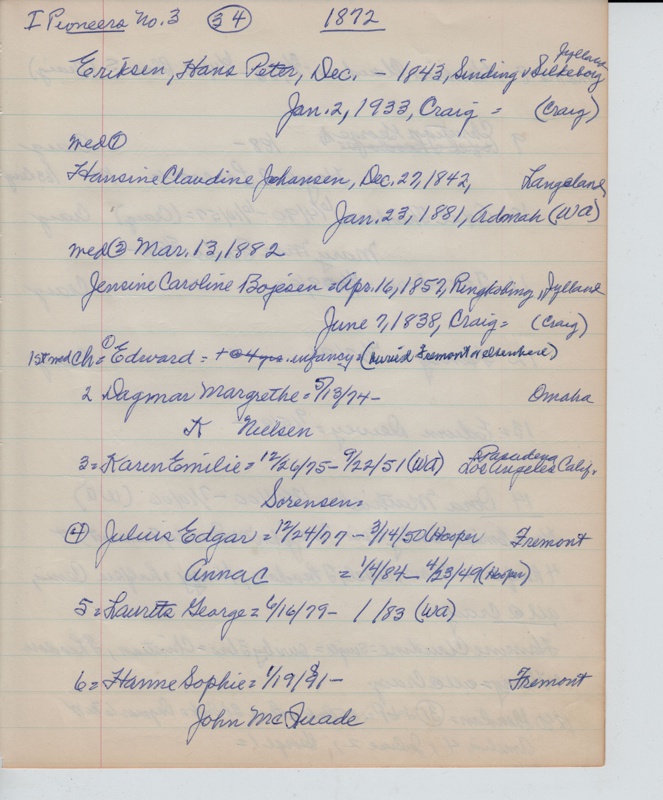 I Pioneers No. 3 (34) 1872
Jylland
Eriksen, Hans Peter, Dec. - 1843, Sinding v Silkeborg
Jan. 2, 1933, Craig = (Craig)
med ①
Hansine Claudine Johansen, Dec. 27, 1842, Langeland
Jan. 23, 1881, Admah (WA)
med ② Mar. 13, 1882
Jensine Caroline Bojesen = Apr. 16, 1857, Ringkobing, Jylland
June 7, 1838, Craig = (Craig)
1st med Ch = ① Edward = infancy = (buried Fremont or elsewhere)
2 Dagmar Margrethe = 5/13/74 - Omaha
K Nielsen
Pasadena
3 = Karen Emilie = 12/26/75 - 9/22/51 (WA) Los Angeles Calif.
Sorensen =
④ Julius Edgar = 12/24/77 - 3/14/50 (Hooper Fremont
Anna C = 1/4/84 - 4/23/49 (Hooper)
5 = Laurets George = 6/16/79 - 1/83 (WA)
6 = Hanne Sophie = 1/19/81 - Fremont
John McQuade